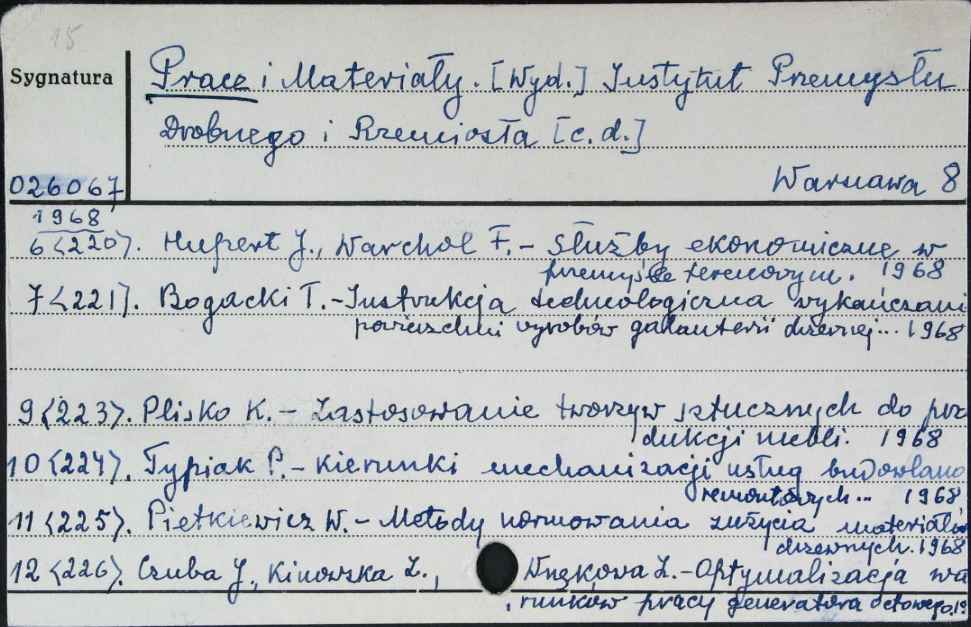 15
Sygnatura
Prace i Materiały. [Wyd.] Instytut Przemysłu
Drobnego i Rzemiosła [c.d.]
026067
Warszawa 8
1968
6<220>. Hupert J., Warchoł F. - Służby ekonomiczne w
przemyśle terenowym. 1968
7<221>. Bogacki T. - Instrukcja technologiczna wykańczani
powierzchni wyrobów galanterii drzewnej... 1968
9<223>. Plisko K. - Zastosowanie tworzyw sztucznych do pro
dukcji mebli. 1968
10<224>. Typiak P. - Kierunki mechanizacji usług budowlano
remontowych... 1968
11<225>. Pietkiewicz W. - Metody normowania zużycia materiałów
drzewnych. 1968
12<226>. Czuba J., Kinowska Z., Wnękowa Z. - Optymalizacja wa
runków pracy generatora octowego. 19